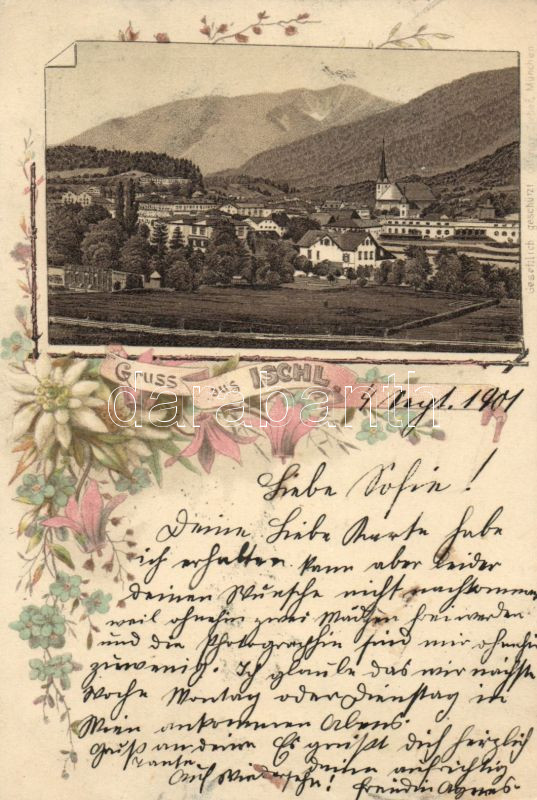 Gesetzlich geschützt
München
Gruss aus ISCHL.
darabanth
1901
Liebe Sofie!
Deine Liebe Karte habe
ich erhalten kann aber leider
deinen Wunsche nicht nachkommen
weil ohnehin zwei Mädchen frei werden
und die Photographin sind mir ohnehin
zuwenig. Ich glaube das wir nächste
Woche Montag oder Dienstag in
Wien ankommen Abens.
Gruß an deine Es grüßt dich herzlich
Tante deine aufrichtig
Auf Wiedersehn! Freundin Agnes